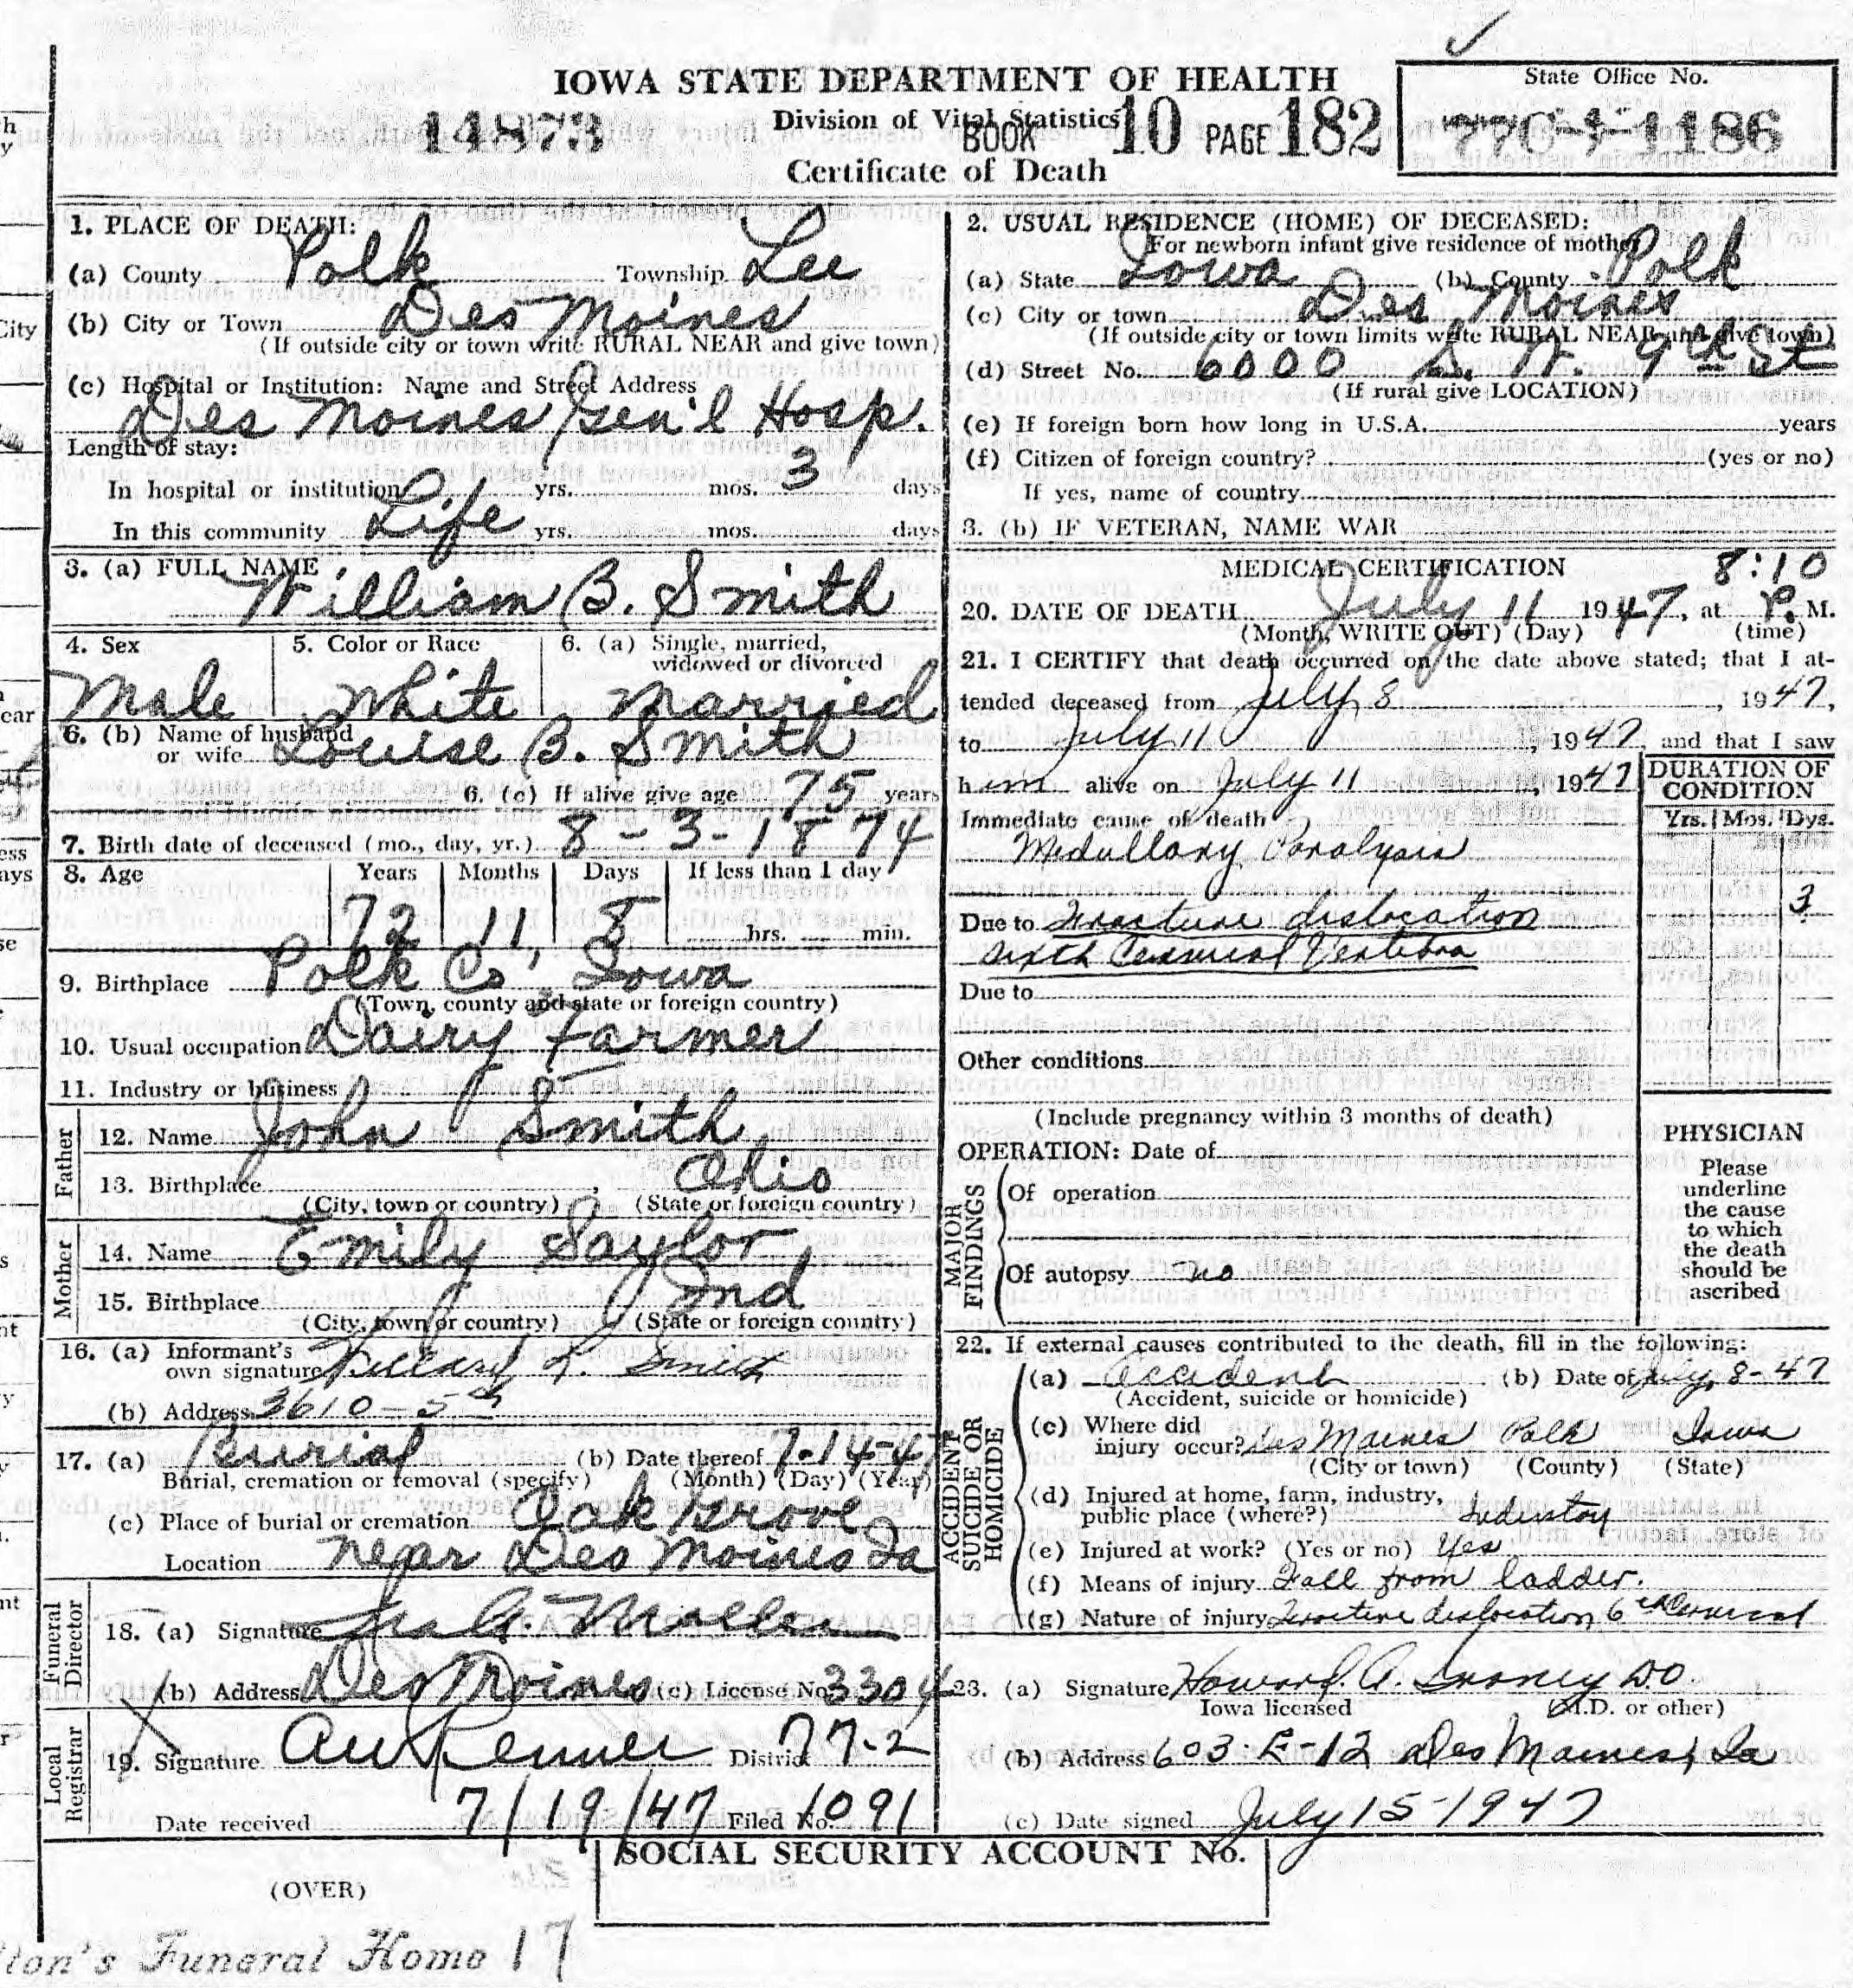 IOWA STATE DEPARTMENT OF HEALTH
Division of Vital Statistics
14873 BOOK 10 PAGE 182
Certificate of Death
State Office No.
1186
1. PLACE OF DEATH:
(a) County Polk Township Lee
(b) City or Town Des Moines
(If outside city or town write RURAL NEAR and give town)
(c) Hospital or Institution: Name and Street Address
Des Moines Gen'l Hosp.
Length of stay:
In hospital or institution yrs. mos. 3 days
In this community Life yrs. mos. days
3. (a) FULL NAME
William B. Smith
4. Sex 5. Color or Race 6. (a) Single, married,
widowed or divorced
Male White Married
6. (b) Name of husband
or wife Louise B. Smith
6. (c) If alive give age 75 years
7. Birth date of deceased (mo., day, yr.) 8-3-1874
8. Age Years Months Days If less than 1 day
72 11 8 hrs. min.
9. Birthplace Polk Co, Iowa
(Town, county and state or foreign country)
10. Usual occupation Dairy Farmer
11. Industry or business
Father
12. Name John Smith
13. Birthplace , Ohio
(City, town or country) (State or foreign country)
Mother
14. Name Emily Saylor
15. Birthplace Ind
(City, town or country) (State or foreign country)
16. (a) Informant's
own signature L. Smith
(b) Address 3610-5th
17. (a) Burial (b) Date thereof 7-14-47
Burial, cremation or removal (specify) (Month) (Day) (Year)
(c) Place of burial or cremation Oak Grove
Location near Des Moines Ia
Funeral Director
18. (a) Signature
(b) Address Des Moines (c) License No. 3304
Local Registrar
19. Signature District 77-2
Date received 7/19/47 Filed No. 1091
2. USUAL RESIDENCE (HOME) OF DECEASED:
For newborn infant give residence of mother
(a) State Iowa (b) County Polk
(c) City or town Des Moines
(If outside city or town limits write RURAL NEAR and give town)
(d) Street No. 6000 S. W. 9th St
(If rural give LOCATION)
(e) If foreign born how long in U.S.A. years
(f) Citizen of foreign country? (yes or no)
If yes, name of country
3. (b) IF VETERAN, NAME WAR
MEDICAL CERTIFICATION 8:10
20. DATE OF DEATH July 11 1947, at P. M.
(Month, WRITE OUT) (Day) (time)
21. I CERTIFY that death occurred on the date above stated; that I at-
tended deceased from July 8, 1947,
to July 11, 1947 and that I saw
him alive on July 11, 1947
DURATION OF
CONDITION
Yrs. Mos. Dys.
3
Immediate cause of death
Medullary Paralysis
Due to Fracture dislocation
sixth Cervical Vertebra
Due to
Other conditions
(Include pregnancy within 3 months of death)
OPERATION: Date of
MAJOR FINDINGS
Of operation
Of autopsy no
PHYSICIAN
Please
underline
the cause
to which
the death
should be
ascribed
22. If external causes contributed to the death, fill in the following:
ACCIDENT SUICIDE OR HOMICIDE
(a) Accident (b) Date of July 8-47
(Accident, suicide or homicide)
(c) Where did
injury occur? Des Moines Polk Iowa
(City or town) (County) (State)
(d) Injured at home, farm, industry,
public place (where?) Industry
(e) Injured at work? (Yes or no) Yes
(f) Means of injury Fall from ladder.
(g) Nature of injury Fracture dislocation 6th Cervical
23. (a) Signature Howard A. D.O.
Iowa licensed (M.D. or other)
(b) Address 603-E-12 Des Moines, Ia
(c) Date signed July 15-1947
SOCIAL SECURITY ACCOUNT No.
(OVER)
ton's Funeral Home 17